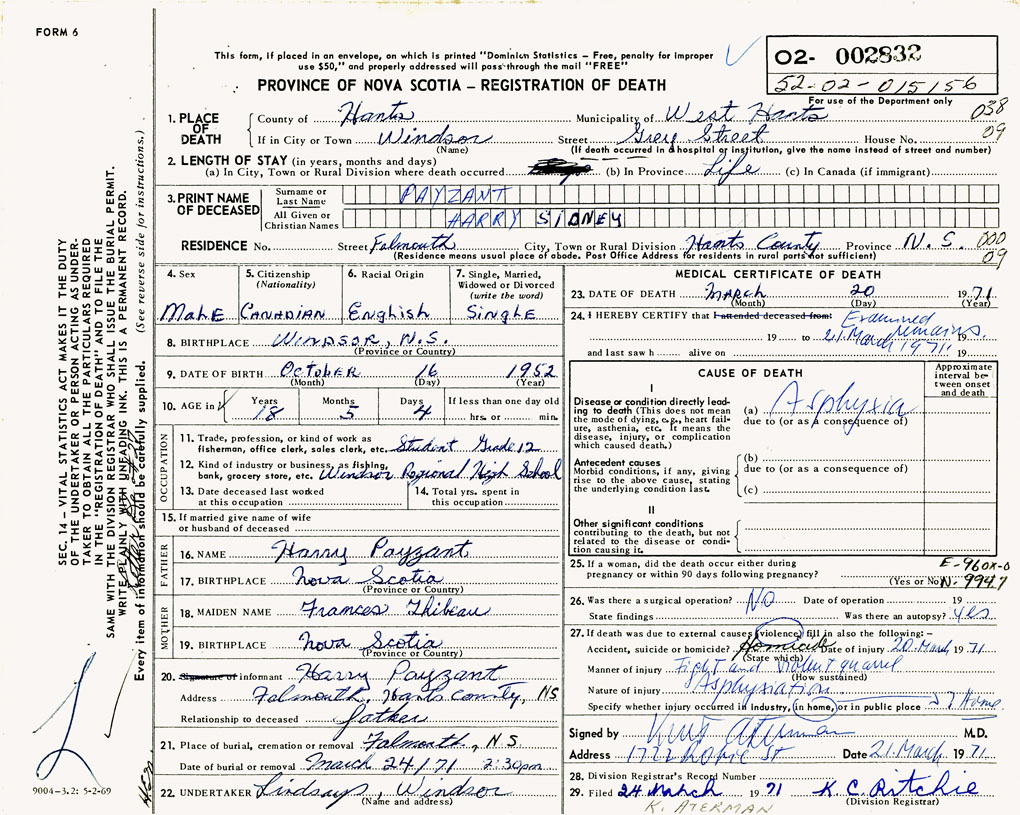 FORM 6
This form, if placed in an envelope, on which is printed "Dominion Statistics - Free, penalty for improper
use $50," and properly addressed will pass through the mail "FREE"
O2- 002832
52-02-015156
For use of the Department only
PROVINCE OF NOVA SCOTIA - REGISTRATION OF DEATH
1. PLACE OF DEATH
County of Hants Municipality of West Hants 038
If in City or Town Windsor Street Grey Street House No. 09
(Name) (If death occurred in a hospital or institution, give the name instead of street and number)
2. LENGTH OF STAY (in years, months and days)
(a) In City, Town or Rural Division where death occurred (b) In Province Life (c) In Canada (if immigrant)
3. PRINT NAME OF DECEASED
Surname or Last Name PAYZANT
All Given or Christian Names HARRY SIDNEY
RESIDENCE No. Street Falmouth City, Town or Rural Division Hants County Province N.S. 000
(Residence means usual place of abode. Post Office Address for residents in rural parts not sufficient) 09
4. Sex Male
5. Citizenship (Nationality) Canadian
6. Racial Origin English
7. Single, Married, Widowed or Divorced (write the word) Single
8. BIRTHPLACE Windsor, N.S.
(Province or Country)
9. DATE OF BIRTH October 16 1952
(Month) (Day) (Year)
10. AGE in Years Months Days If less than one day old
18 5 4 hrs. or min.
OCCUPATION
11. Trade, profession, or kind of work as
fisherman, office clerk, sales clerk, etc. Student Grade 12
12. Kind of industry or business, as fishing,
bank, grocery store, etc. Windsor Regional High School
13. Date deceased last worked
at this occupation
14. Total yrs. spent in
this occupation
15. If married give name of wife
or husband of deceased
FATHER
16. NAME Harry Payzant
17. BIRTHPLACE Nova Scotia
(Province or Country)
MOTHER
18. MAIDEN NAME Frances Thibeau
19. BIRTHPLACE Nova Scotia
(Province or Country)
20. Signature of informant Harry Payzant
Address Falmouth, Hants County, NS
Relationship to deceased father
21. Place of burial, cremation or removal Falmouth, N.S.
Date of burial or removal March 24/71 2:30pm
22. UNDERTAKER Lindsays, Windsor
(Name and address)
MEDICAL CERTIFICATE OF DEATH
23. DATE OF DEATH March 20 1971
(Month) (Day) (Year)
24. I HEREBY CERTIFY that I attended deceased from: Examined
19 to 21. March 1971. remains. 19
and last saw h alive on 19
CAUSE OF DEATH
Approximate interval between onset and death
I
Disease or condition directly leading to death (This does not mean the mode of dying, e.g., heart failure, asthenia, etc. It means the disease, injury, or complication which caused death.)
(a) Asphyxia
due to (or as a consequence of)
Antecedent causes
Morbid conditions, if any, giving rise to the above cause, stating the underlying condition last.
(b)
due to (or as a consequence of)
(c)
II
Other significant conditions
contributing to the death, but not related to the disease or condition causing it.
25. If a woman, did the death occur either during
pregnancy or within 90 days following pregnancy? (Yes or No)
E-960X-0
N-994.7
26. Was there a surgical operation? No Date of operation 19
State findings Was there an autopsy? yes
27. If death was due to external causes (violence) fill in also the following:-
Accident, suicide or homicide? Homicide Date of injury 20. March 1971
(State which)
Manner of injury Fight and violent quarrel
(How sustained)
Nature of injury Asphyxiation
Specify whether injury occurred in industry, in home, or in public place ? Home
Signed by Aterman M.D.
Address Date 21. March 1971
28. Division Registrar's Record Number
29. Filed 24 March 1971 K. C. Ritchie
(Division Registrar)
K. ATERMAN
SEC. 14 - VITAL STATISTICS ACT MAKES IT THE DUTY
OF THE UNDERTAKER OR PERSON ACTING AS UNDER-
TAKER TO OBTAIN ALL THE PARTICULARS REQUIRED
IN THE "REGISTRATION OF DEATH" AND TO FILE THE
SAME WITH THE DIVISION REGISTRAR WHO SHALL ISSUE THE BURIAL PERMIT.
WRITE PLAINLY WITH UNFADING INK. THIS IS A PERMANENT RECORD.
Every item of information should be carefully supplied. (See reverse side for instructions.)
9004-3.2: 5-2-69